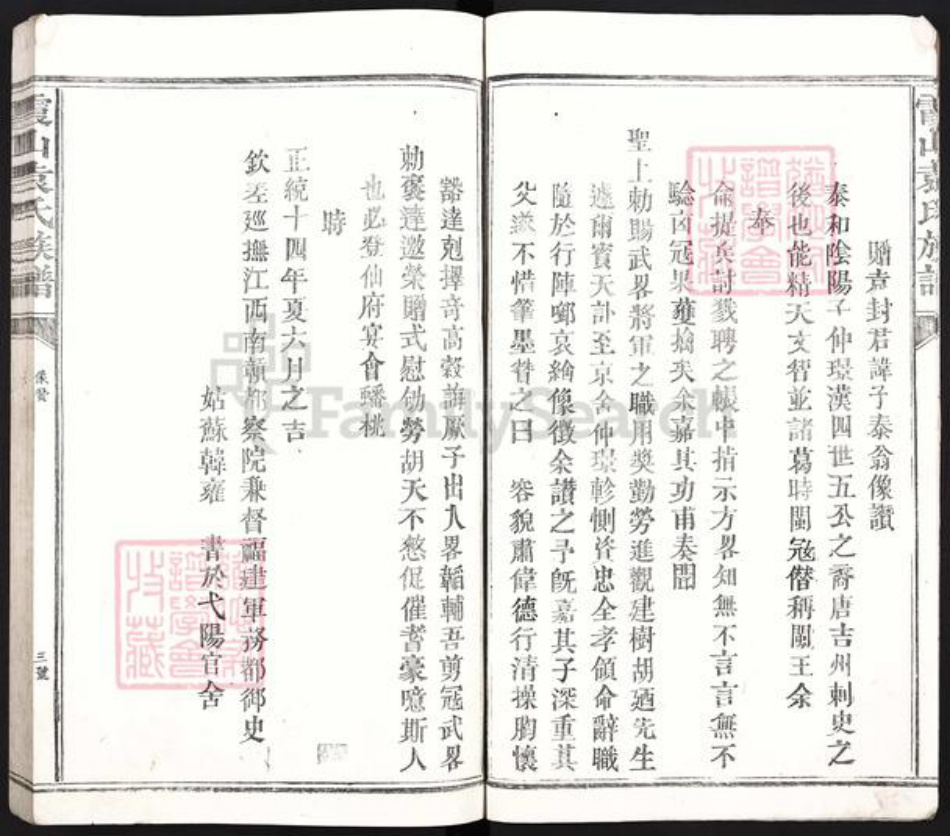 霞山袁氏族譜
贈袁封君諱子泰翁像讚
泰和陰陽子仲璟漢四世五公之裔唐吉州刺史之
後也能精天文智並諸葛時閩寇僭稱閩王余
奉
命提兵討戮聘之帳中指示方畧知無不言言無不
驗囟冦果獲擒矣余嘉其功甫奏聞
聖上勅賜武畧將軍之職用奬勤勞進觀建樹胡廼先生
遽爾賓天訃至京舍仲璟軫惻資忠全孝領命辭職
隨於行陣啣哀繪像徵余讃之予既嘉其子深重其
父遂不惜筆墨贊之曰 容貌肅偉德行清操胸懷
豁達剋擇竒高穀誨厥子出入畧韜輔吾剪冦武畧
勅褒達邀榮贈式慰劬勞胡天不慭促催耆豪噫斯人
也必登仙府宴會蟠桃
時
正統十四年夏六月之吉
欽差巡撫江西南贛都察院兼督福建軍務都御史
姑蘇韓雍 書於弋陽官舍
霞山袁氏族譜
像贊
三號
FamilySearch